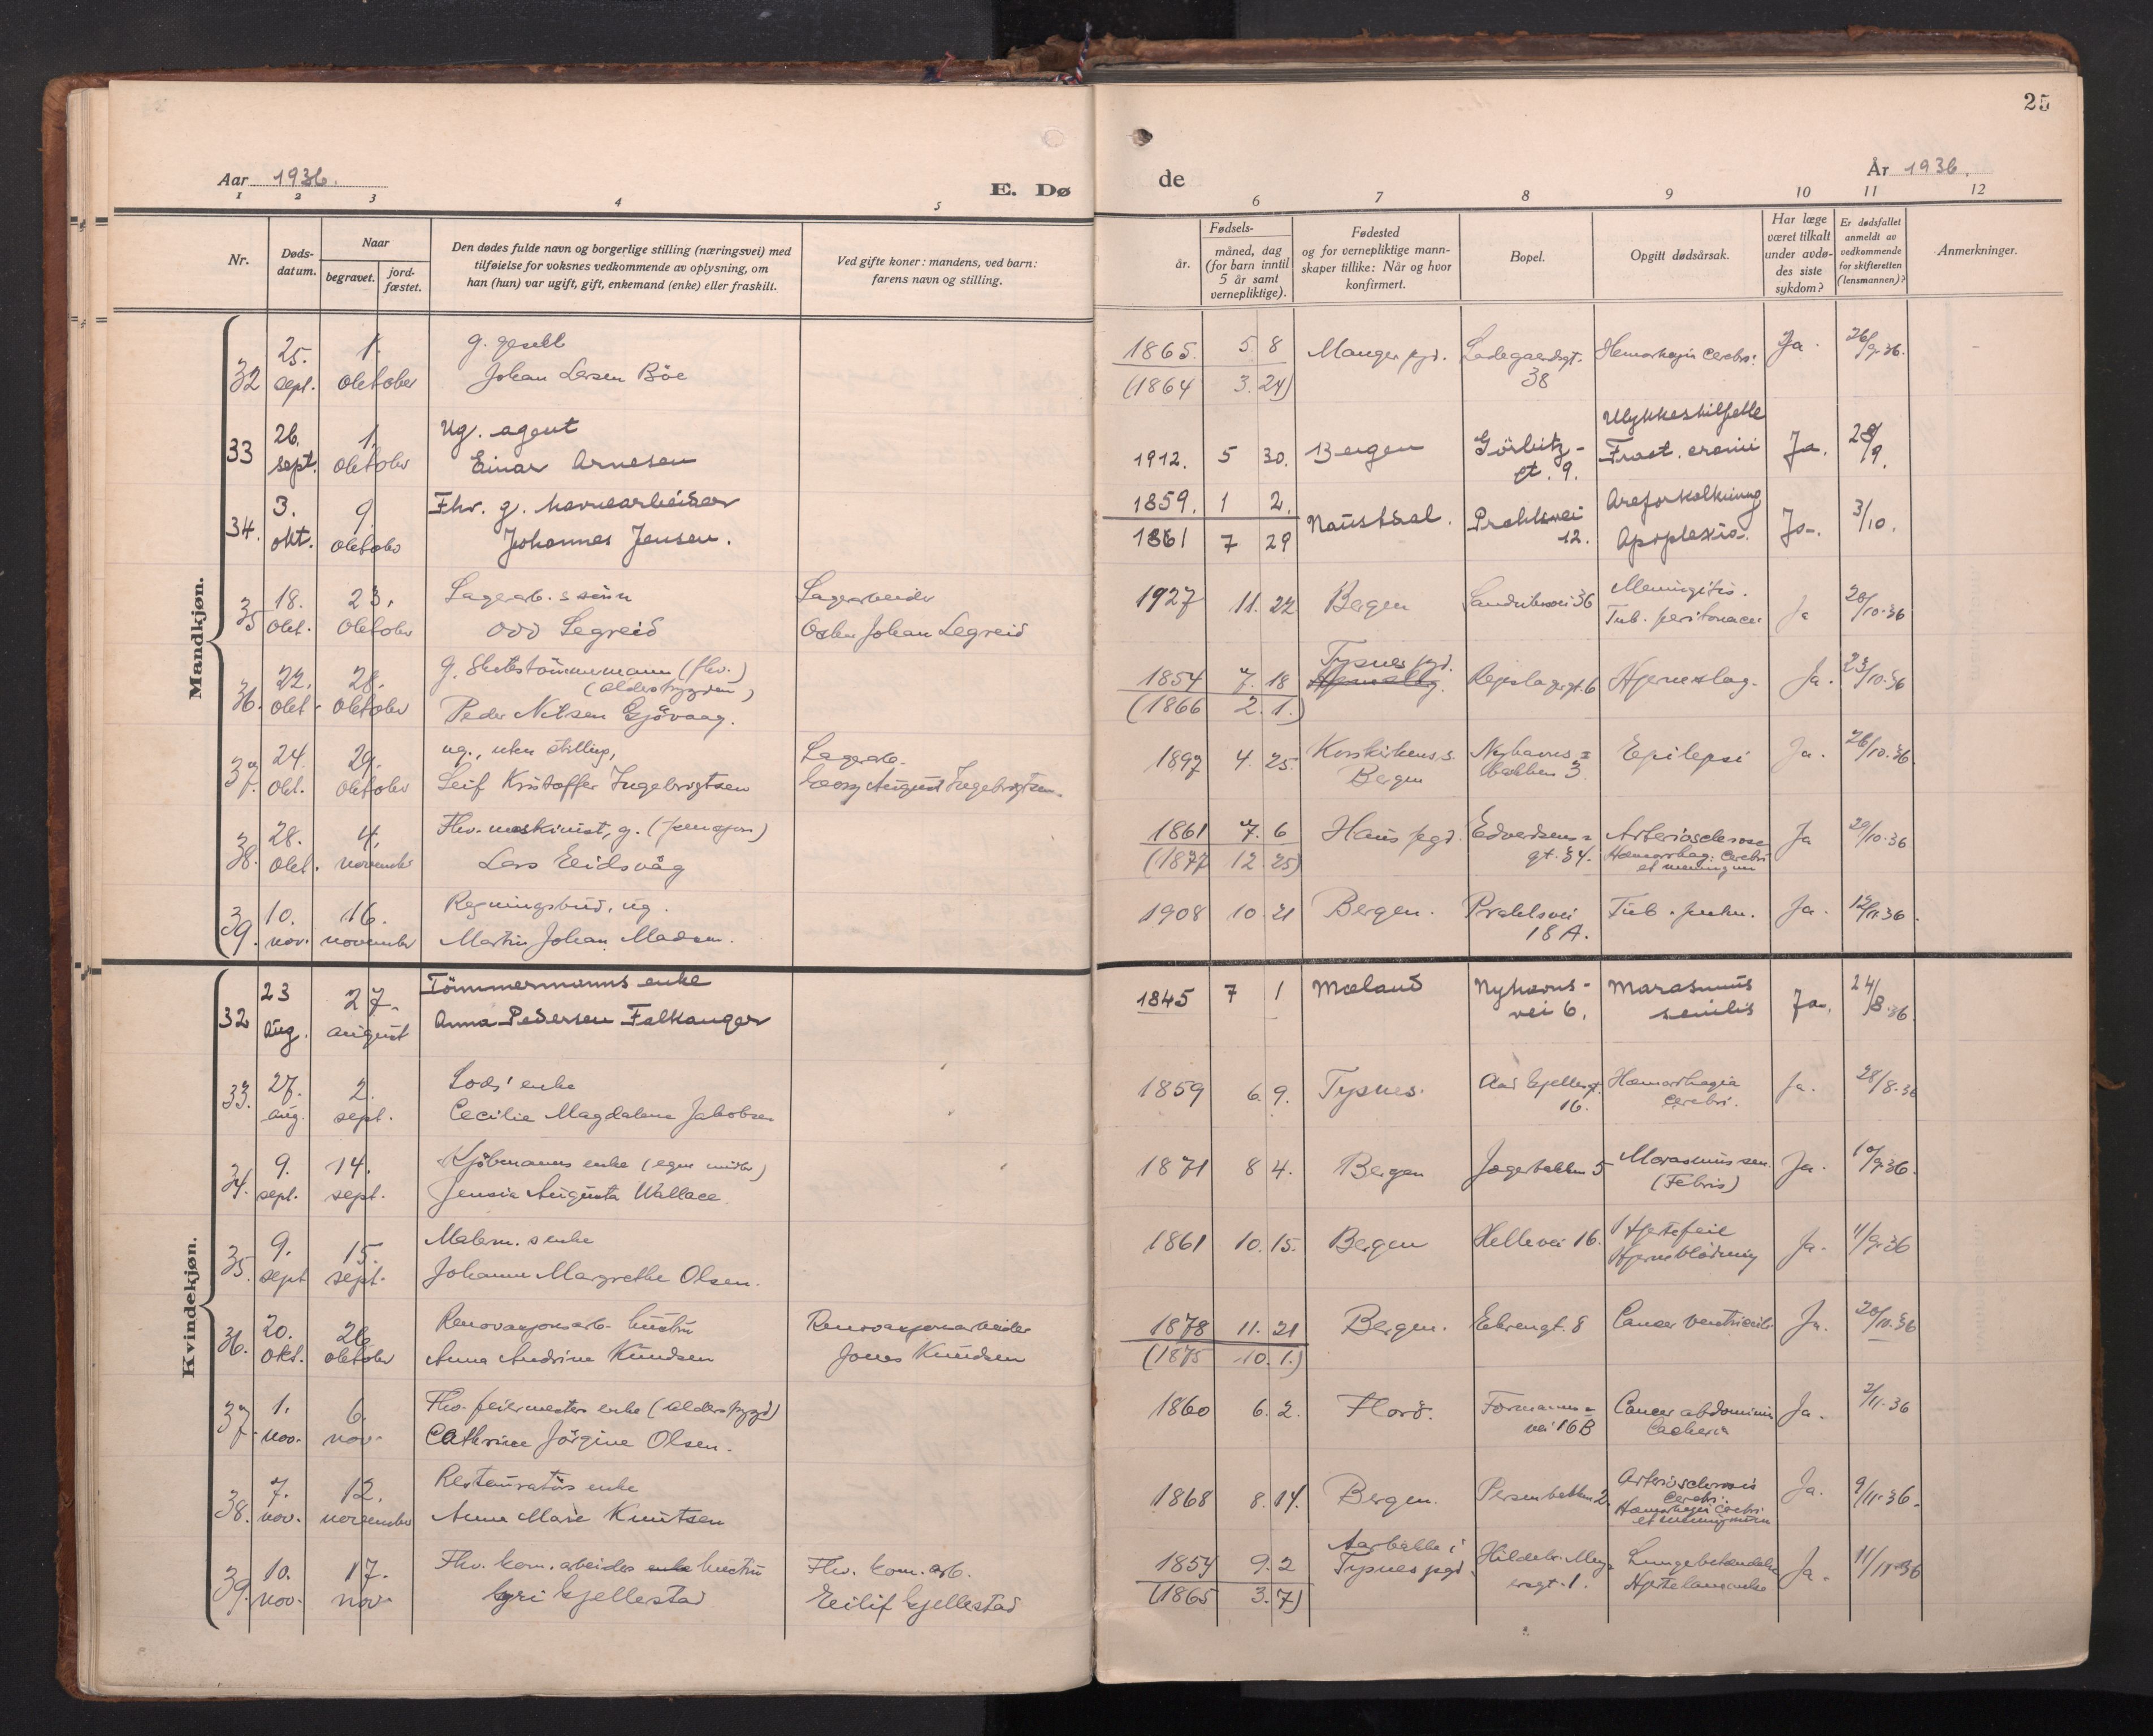 25
Aar 1936.
E. Dø
de
År 1936.
1 2 3 4 5 6 7 8 9 10 11 12
Nr.
Døds-
datum.
Naar
begravet.
jord-
fæstet.
Den dødes fulde navn og borgerlige stilling (næringsvei) med
tilføielse for voksnes vedkommende av oplysning, om
han (hun) var ugift, gift, enkemand (enke) eller fraskilt.
Ved gifte koner: mandens, ved barn:
farens navn og stilling.
Fødsels-
år.
måned, dag
(for barn inntil
5 år samt
vernepliktige).
Fødested
og for vernepliktige mann-
skaper tillike: Når og hvor
konfirmert.
Bopel.
Opgitt dødsårsak.
Har læge
været tilkalt
under avdø-
des siste
sykdom?
Er dødsfallet
anmeldt av
vedkommende
for skifteretten
(lensmannen)?
Anmerkninger.
Mandkjøn.
25. 1. g. 1865. 5 8 Manger pgd. Ladegaardsgt. Ja. 26/9.36.
32 sept. oktober Johan Larsen Böe (1864 3. 24) 38
26. 1. Ug. agent Ulykkestilfelle
33 sept. oktober Einar Arnesen 1912. 5 30. Bergen Görbitz- Fract. cranii Ja. 28/9.
gt. 9.
3. 9. Fhv. g. havnearbeider 1859. 1 2. Naustdal. Prahlsvei Areforkalkning Ja. 3/10.
34. okt. oktober Johannes Jensen. 1861 7 29 12. Apoplexia.
18. 23. Lagerarb. s sönn Lagerarbeider 1927 11. 22 Bergen 36 Meningitis. Ja 20/10.36
35 okt. oktober Odd Legreid Johan Legreid Tub. peritonaei
22. 28. g. Skibstömmermann (fhv.) 1854 7. 18 Tysnes pgd. Repslagergt. 6 Hjerneslag. Ja. 23/10.36
(alderstrygden)
36. okt. oktober Peder Nilsen Gjövaag. (1866 2. 1.)
24. 29. ug., uten stilling, Lagerarb. 1897 4. 25. Korskirkens s. Nyhavns- Epilepsi Ja. 26/10.36.
37. okt. oktober Leif Kristoffer Ingebrigtsen Georg August Ingebrigtsen. Bergen bakken 3.
28. 4. Fhv. maskinist, g. (pensjon) 1861 7. 6 Haus pgd. Edvardsens- Arteriosclerose Ja 29/10.36
38. okt. november Lars Eidsvåg (1877 12 25) gt. 34. Hæmorrhag. cerebri
et meningum
10. 16. Regningsbud, ug. 1908 10. 21 Bergen. Prahlsvei Tub. pulm. Ja. 12/11.36.
39. nov. november Martin Johan Madsen. 18 A.
Kvindekjøn.
23 27. Tömmermanns enke 1845 7 1 Mæland Nyhavns- Marasmus Ja. 24/8.36.
32 aug. august Anna Pedersen Falkanger vei 6. senilis
27. 2. Lods' enke 1859 6. 9. Tysnes. Hæmorrhagia Ja. 28/8.36
33. aug. sept. Cecilie Magdalene Jakobsen 16. cerebri.
9. 14. Kjöbmanns enke (egne midler) 1871 8 4. Bergen Jægerbakken 5 Marasmus sen. Ja. 10/9.36.
34. sept. sept. Jensia Augusta Wallace. (Febris)
9. 15. Malerm. s enke 1861 10. 15. Bergen Hellevei 16. Hjertefeil Ja. 11/9.36
35. sept sept. Johanne Margrethe Olsen. Hjerneblödning
20. 26 Renovasjonsarb. hustru Renovasjonsarbeider 1878 11. 21 Bergen. Ehrengt. 8 Cancer ventriculi Ja. 20/10.36
36. okt. oktober Anna Andrine Knudsen Jonas Knudsen (1875 10. 1.)
1. 6. Fhv. feiermesters enke (alderstrygd) 1860 6. 2. Florö. Formanns- Cancer abdominis Ja. 2/11.36
37. nov. nov. Cathrine Jörgine Olsen. vei 16B
7. 12. Restauratörs enke 1868 8. 14. Bergen. Persenbakken 2. Arteriosclerosis Ja. 9/11.36.
38. nov. november Anna Marie Knutsen cerebri.
Hæmorhagia cerebri
et meningum
10. 17. Fhv. kom. arbeider enke hustru Fhv. kom. arb. 1854 9. 2 Aarbakke i Lungebetændelse Ja. 11/11.36
39. nov. nov. Gyri Gjellestad Eilif Gjellestad (1865 3. 7) Tysnes pgd. ersgt. 1. Hjertelammelse